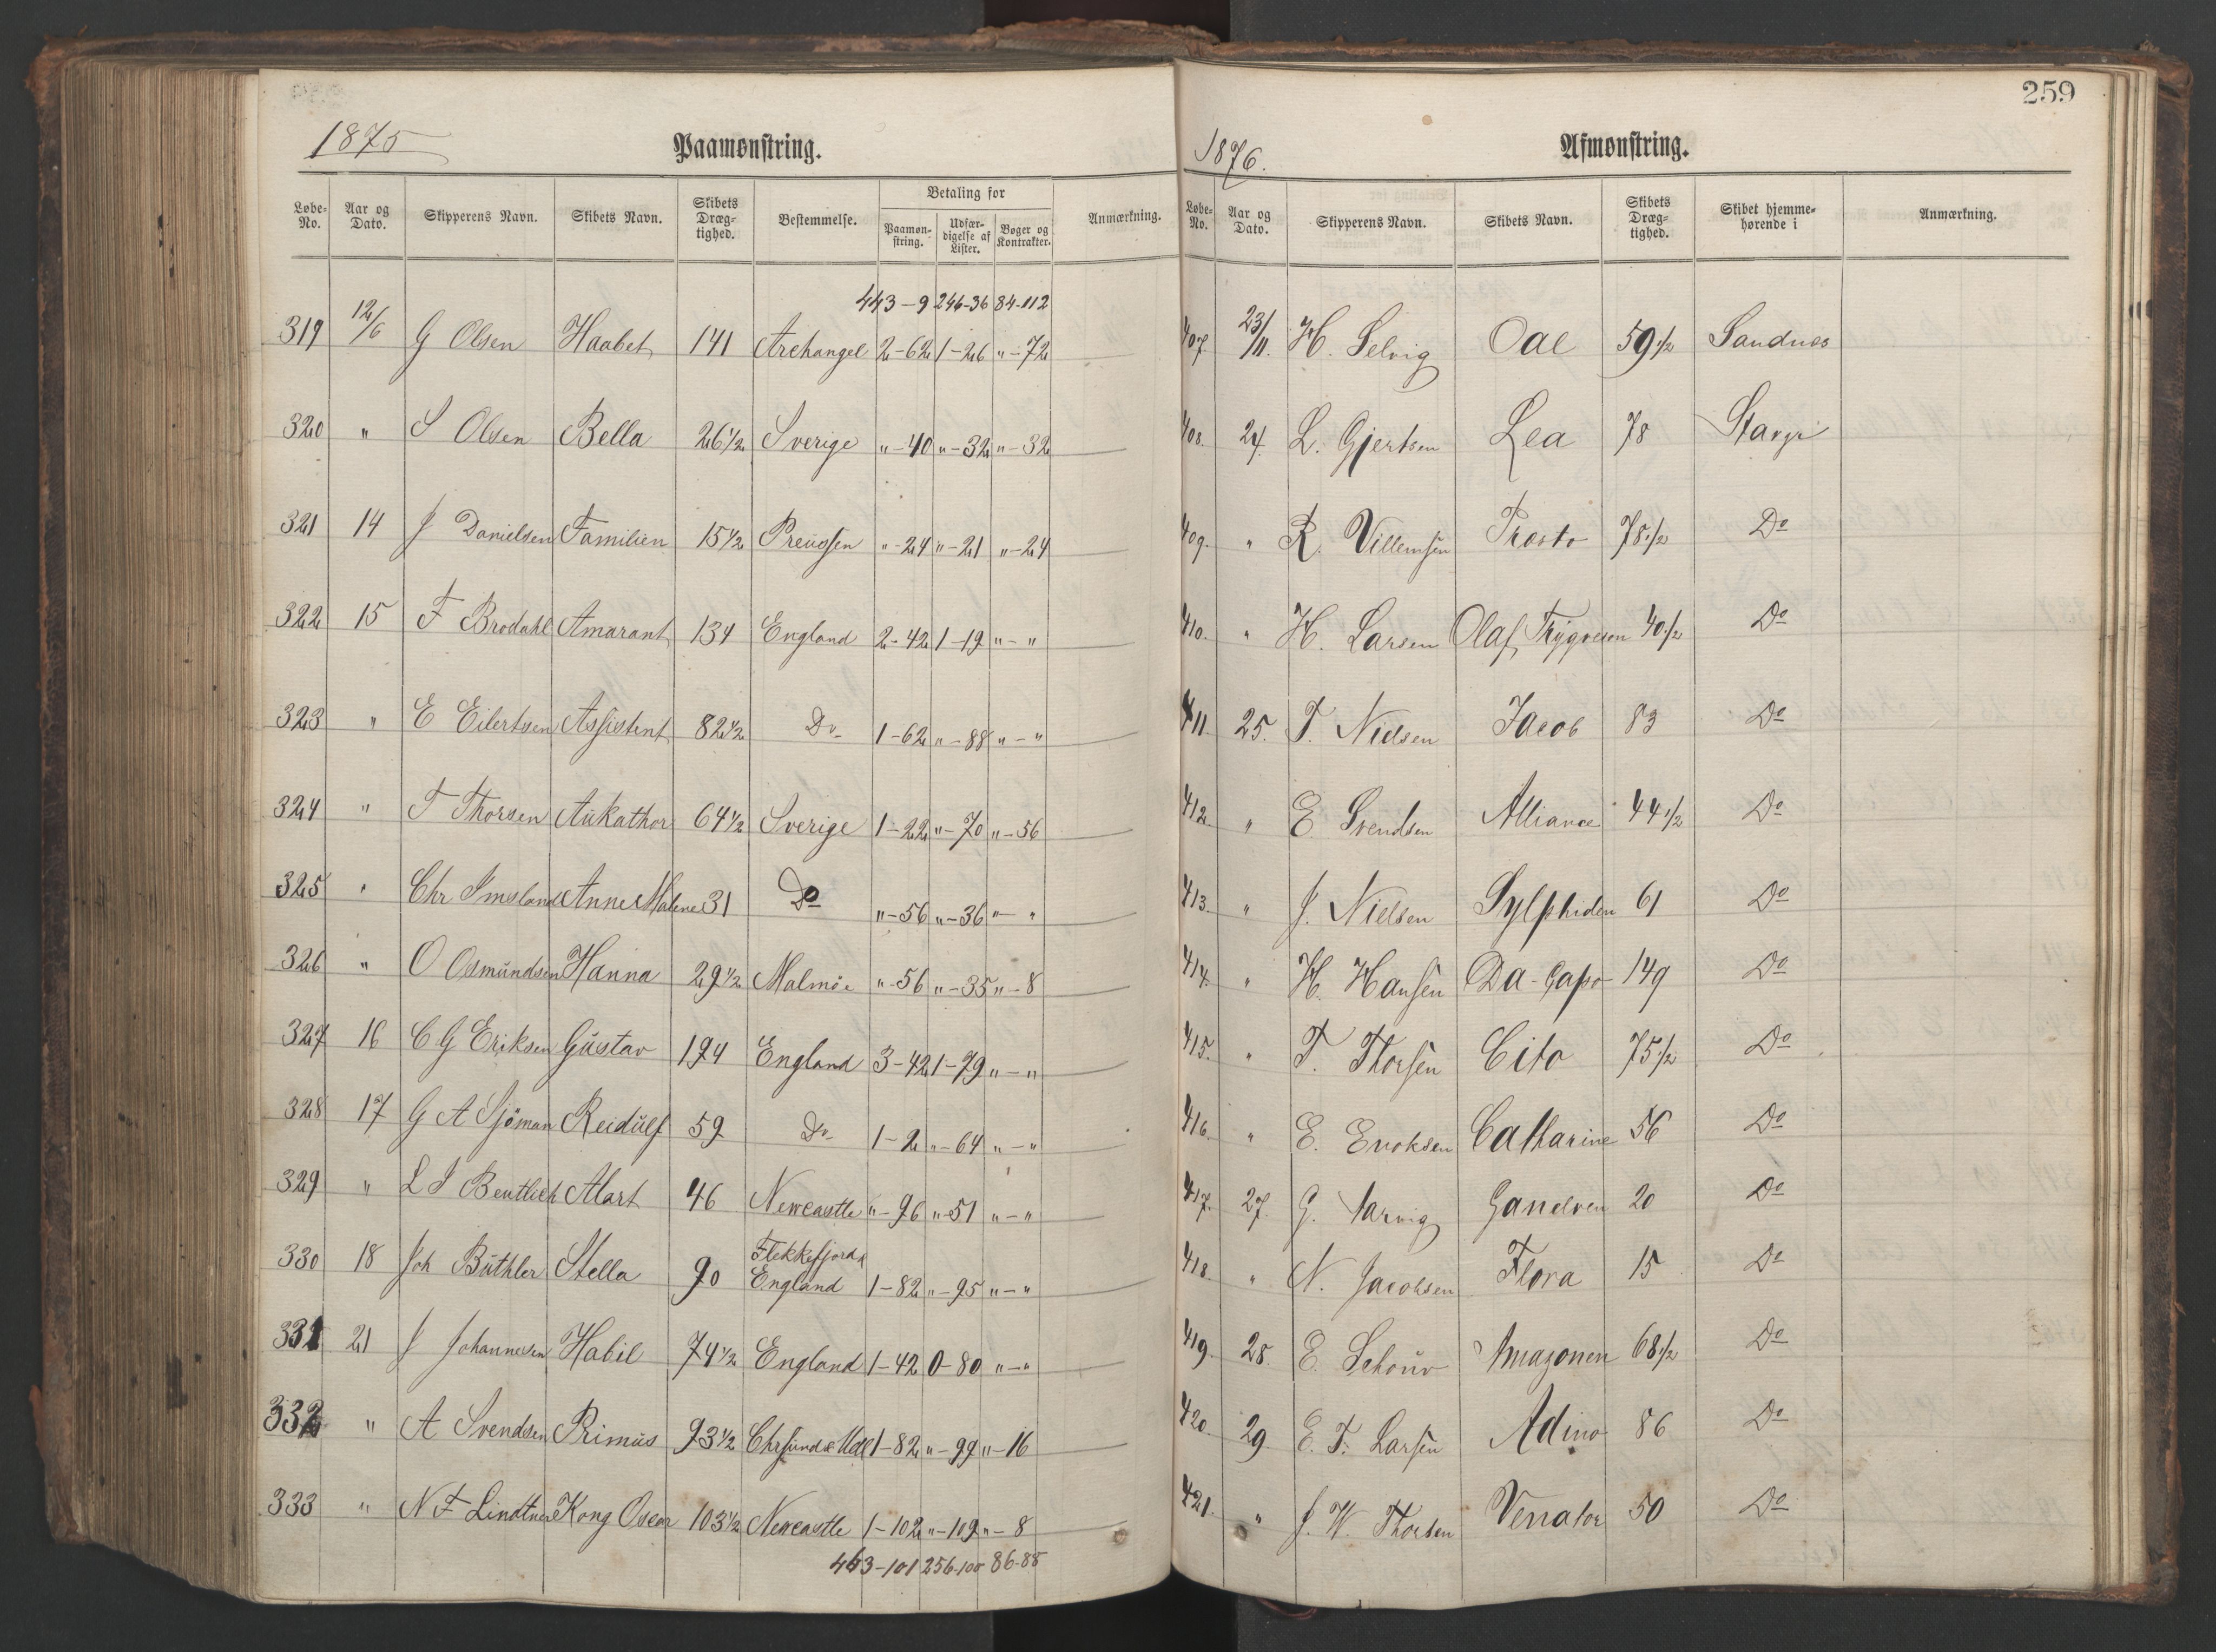 1875
Paamønstring.
Løbe-No. Aar og Dato. Skipperens Navn. Skibets Navn. Skibets Dræg-tighed. Bestemmelse. Betaling for Paamøn-string. Udfær-digelse af Lister. Bøger og Kontrakter. Anmærkning.
443-9 246-36 84-112
319 12/6 G Olsen Haabet 141 Archangel 2-62 1-26 "-72
320 " S Olsen Bella 26 1/2 Sverige "-40 "-32 "-32
321 14 J Danielsen Familien 15 1/2 Preussen "-24 "-21 "-24
322 15 F Brodahl Amarant 134 England 2-42 1-19 "-"
323 " E Eilertsen Assistent 82 1/2 Do 1-62 "-88 "-"
324 " T Thorsen Aukathor 64 1/2 Sverige 1-22 "-70 "-56
325 " Chr Imsland Anne Malene 31 Do "-56 "-36 "-"
326 " O Osmundsen Hanna 29 1/2 Malmöe "-56 "-35 "-8
327 16 C G Eriksen Gustav 194 England 3-42 1-79 "-"
328 17 G A Sjöman Reidulf 59 Do 1-2 "-64 "-"
329 " L J Bentlich Alart 46 Newcastle "-96 "-51 "-"
330 18 Joh Buthler Stella 90 Flekkefjord & England 1-82 "-95 "-"
331 21 J Johannesen Habil 74 1/2 England 1-42 0-80 "-"
332 " A Svendsen Primus 93 1/2 Chrsund 1-82 "-99 "-16
333 " N F Lindtner Kong Oscar 103 1/2 Newcastle 1-102 "-109 "-8
463-101 256-100 86-88
259
1876.
Afmønstring.
Løbe-No. Aar og Dato. Skipperens Navn. Skibets Navn. Skibets Dræg-tighed. Skibet hjemme-hørende i Anmærkning.
407. 23/11. H. Selvig Oal 59 1/2 Sandnes
408. 24. L. Gjertsen Lea 78 Stavgr
409. " R. Villemsen Presto 78 1/2 Do
410. " H. Larsen Olaf Trygvesen 40 1/2 Do
411. 25. T. Nielsen Jacob 83 Do
412. " E Svendsen Alliance 44 1/2 Do
413. " J. Nielsen Sylphiden 61 Do
414. " H. Hansen Da-Capo 149 Do
415. " T. Thorsen Cito 75 1/2 Do
416. " E. Enoksen Catharine 56 Do
417. 27. G. Narvig Gandven 20 Do
418. " N. Jacobsen Flora 15 Do
419. 28. E. Schouv Amazonen 68 1/2 Do
420. 29 E. T. Larsen Adino 86 Do
421. " J. W. Thorsen Venator 50 Do